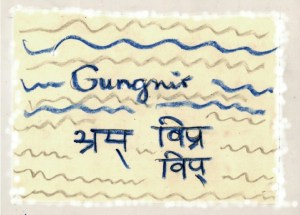 Gungnir
भ्रम् विप्र
विप्